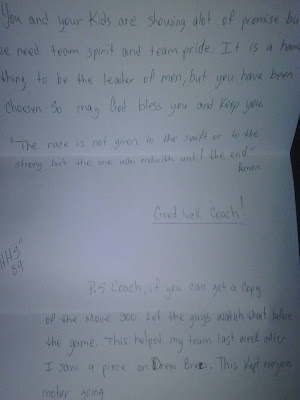 You and your kids are showing alot of promise bu
we need team spirit and team pride. It is a
thing to be the leader of men, but you have been
choosen so may God bless you and keep you.
"The race is not given to the swift or to the
strong but the one who endureth until the end"
Amen
Good luck Coach!
HHS"
89
P.S Coach, if you can get a copy
of the Movie 300. Let the guys watch that before
the game. This helped my team last week after
I saw a piece on Drew Brees. This kept everyones
motor going